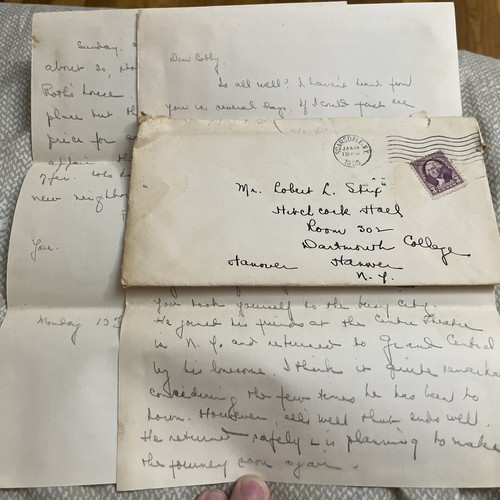 Sunday.
about 30,
Roth's house
place but th
price for a
affair. th
offer.
new neighbo
You.
Monday 13
Dear Bobby.
Is all well? I haven't heard from
you in several days. If I could just see
SCARSDALE, N.Y.
JAN 14
1936
Mr. Robert L. Stix
Hitchcock Hall
Room 302
Dartmouth College
Hanover Hanover
N. Y.
you took yourself to the busy city.
He joined his friends at the Centre Theatre
in N. Y. and returned to Grand Central
by his lonesome. I think it quite remarka
considering the few times he has been to
town. However, all's well that ends well.
He returned safely & is planning to make
the journey soon again.